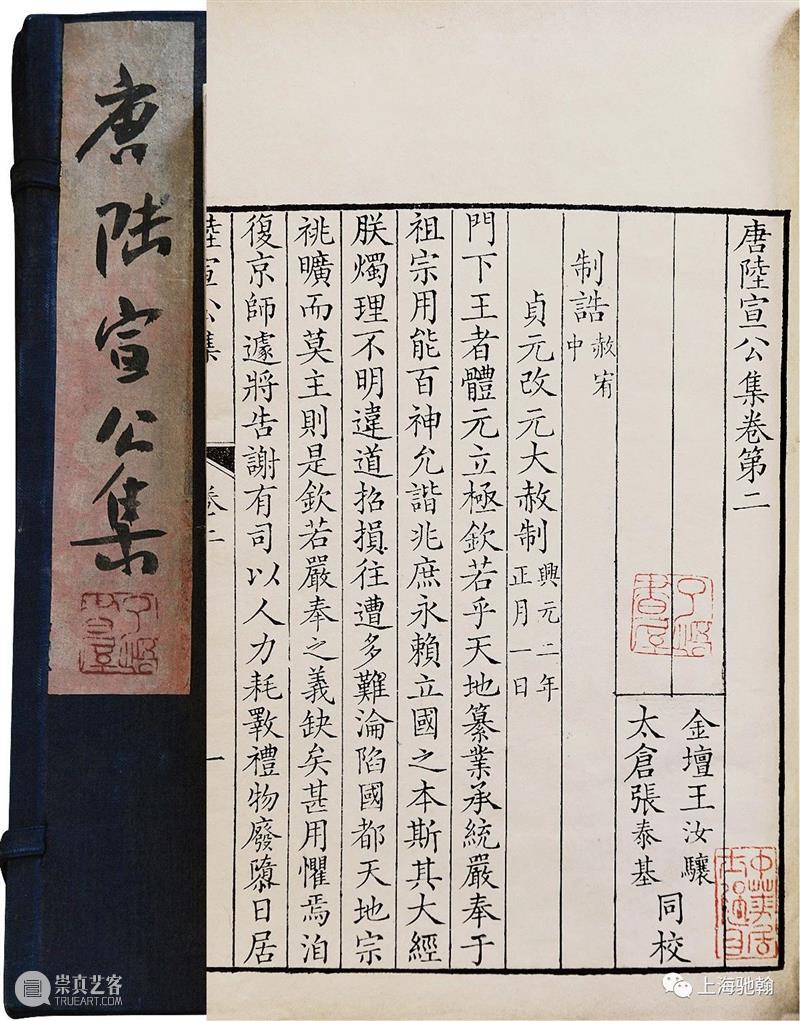 唐陆宣公集
唐陸宣公集卷第二
金壇王汝驤
太倉張泰基
同校
制誥
赦宥
中
貞元改元大赦制
興元二年
正月一日
門下王者體元立極欽若乎天地纂業承統嚴奉于
祖宗用能百神允諧兆庶永賴立國之本斯其大經
朕燭理不明違道招損往遭多難淪陷國都天地宗
祧曠而莫主則是欽若嚴奉之義缺矣甚用懼焉洎
復京師遽將告謝有司以人力耗斁禮物廢隳日居
陸宣公集 卷二 一
崇真艺客
TRUEART.COM
上海驰翰